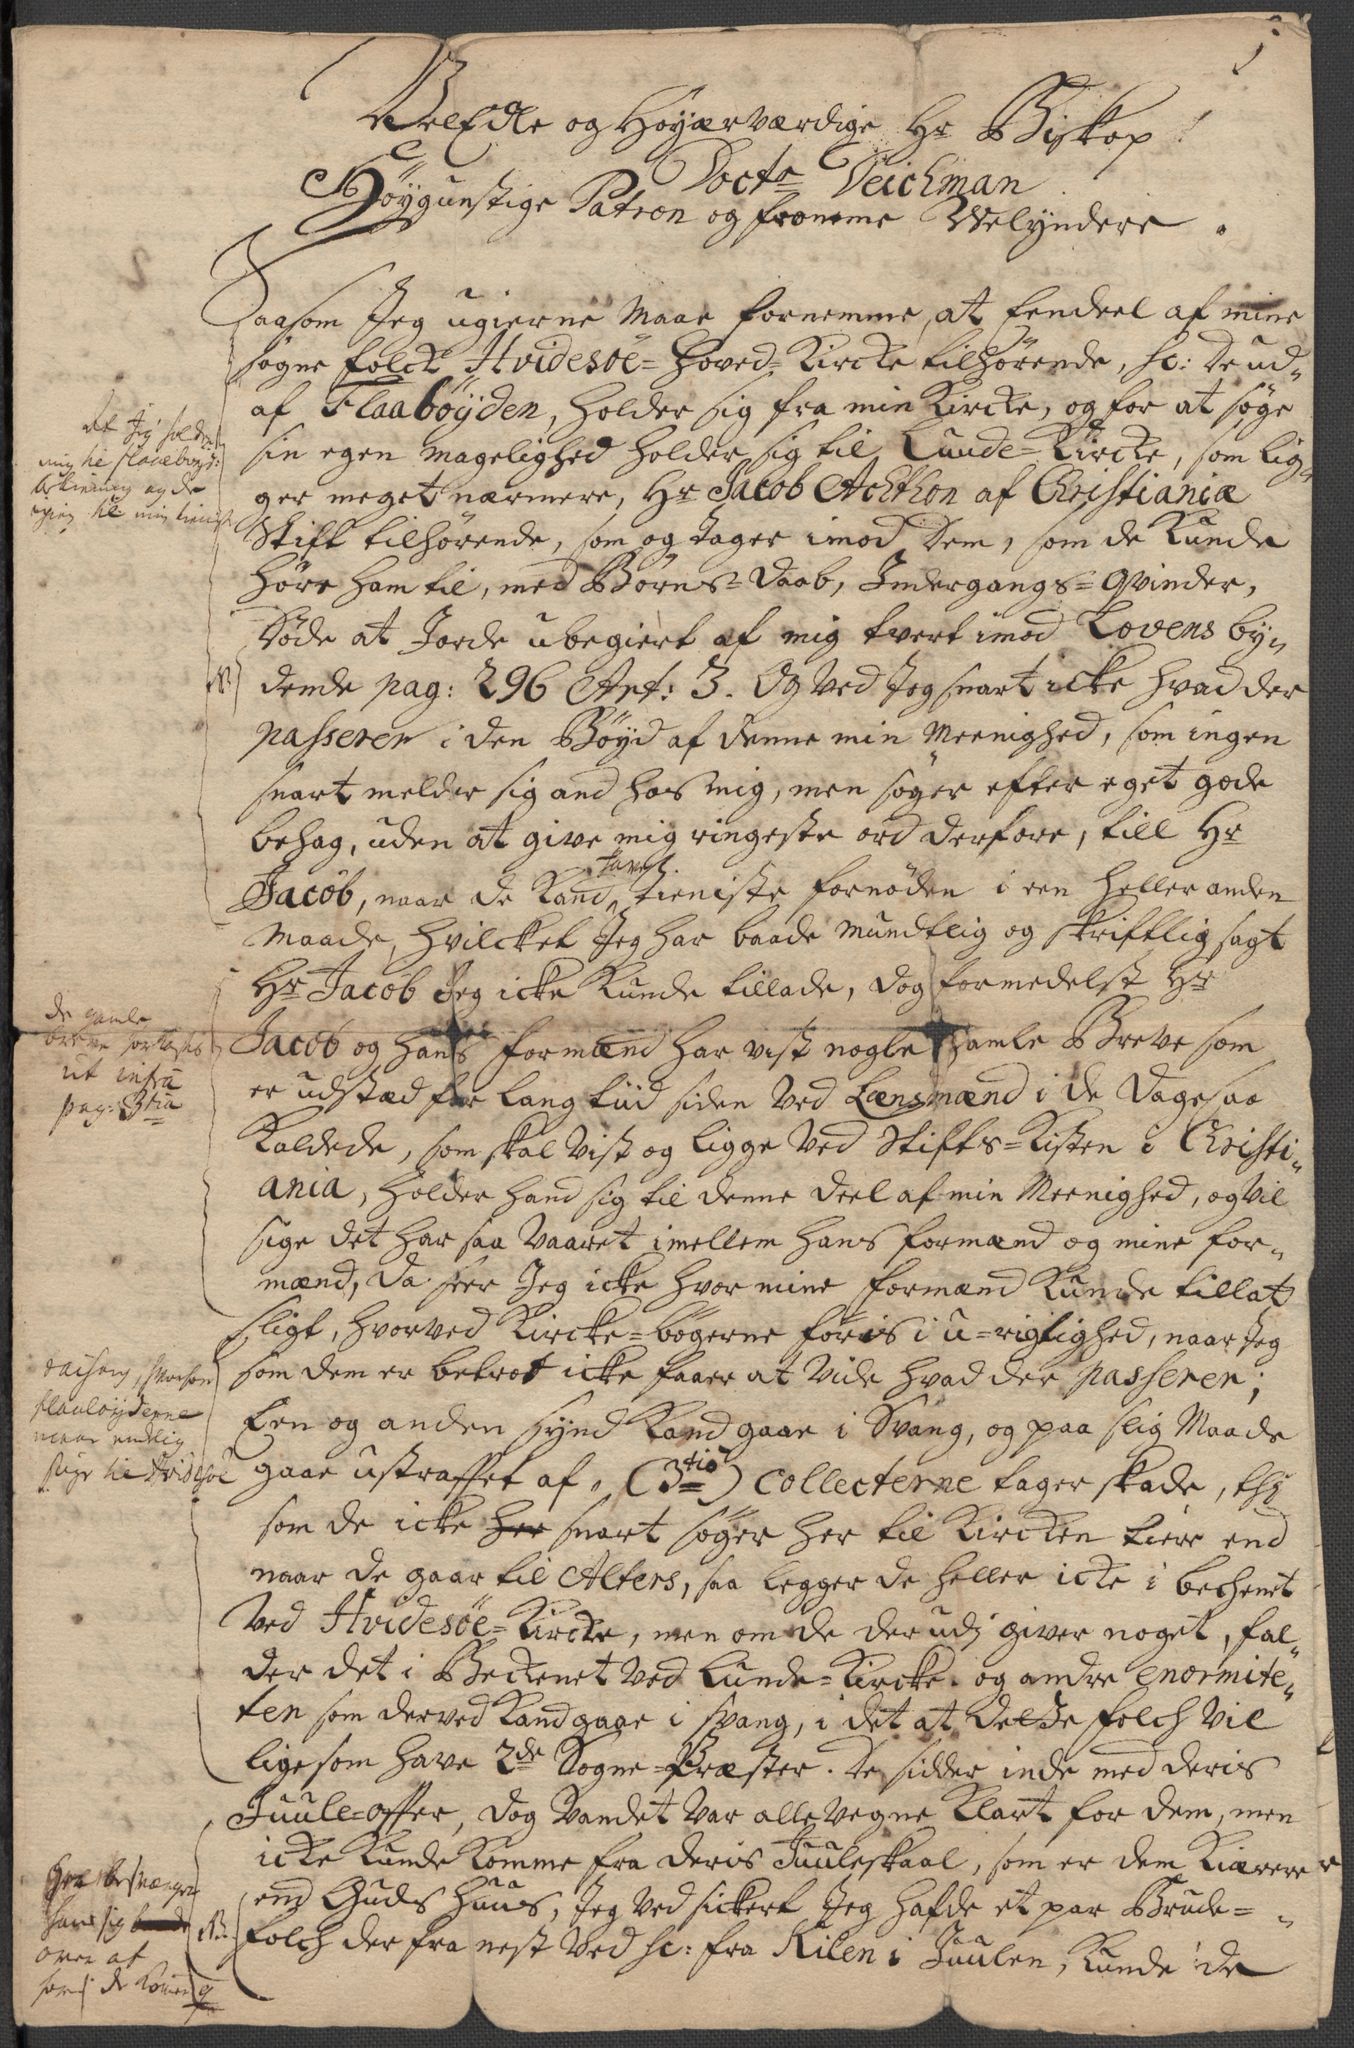 VelEdle og Høyærværdige Hr Biskop
Doctr Deichman
Høygunstige Patron og fromme Velyndere.
Saasom Jeg ugierne maae fornemme, at Eendeel af mine
sogne folck Hvidesöe-Hoved-Kircke tilhørende, sc: de ud-
af Flaabøyden, holder sig fra min Kircke, og for at søge
sin egen magelighed holder sig til Lunde-Kircke, som lig-
ger meget nærmere, Hr Jacob Achthon af Christianiæ
Stift tilhørende, som og tager imod dem, som de kunde
høre ham til, med Børns-Daab, Indergangs-Qvinder,
døde at Jorde ubegiert af mig tvert imod Lovens by-
dende pag: 296 Art: 3. Og ved Jeg snart icke hvad der
passerer i den Bøyd af denne min Meenighed, som ingen
snart melder sig and hos mig, men søger efter eget gode
behag, uden at give mig ringeste ord derfore, till Hr
Jacob, naar de kand have tieniste fornøden i een heller anden
Maade, hvilcket Jeg har baade mundtlig og skriftlig sagt
Hr Jacob Jeg icke kunde tillade, dog formedelst Hr
Jacob og hans formænd har vist nogle gamle Breve som
er udstæd for lang tiid siden ved Lænsmænd i de Dage saa
kaldede, som skal vist og ligge ved Stifts-Kisten i Christi-
ania, holder hand sig til denne deel af min Meenighed, og vil
sige det har saa vaaret imellem hans formænd og mine for-
mænd, da seer Jeg icke hvor mine formænd kunde tillat
sligt, hvorved Kircke-bøgerne føris i u-rigtighed, naar Jeg
som dem er betrot icke faaer at vide hvad der passerer;
Een og anden synd kand gaae i Svang, og paa slig Maade
gaae ustraffet af. (3tio) Collecterne tager skade, thi
som de icke her snart søger her til Kircken tiere end
naar de gaar til Alters, saa legger de heller icke i bechenet
ved Hvidesöe-Kircke, men om de derudj giver noget, fal-
der det i Beckenet ved Lunde-Kircke. og andre enormite-
ten som derved kand gaae i svang, i det at Delde folch vil
ligesom have 2de Sogne-Præster. De sidder inde med deris
Juule-offer, dog vandet var allevegne klart for dem, men
icke kunde komme fra deris Juuleskaal, som er dem kiærere
end Guds Huus, Jeg ved sickert Jeg hafde et par Brude-
folch der fra nest ved sc: fra Kilen i Juulen, kunde de
At Jeg holder
mig til flaabøyd:
og de
til min tienist
NB
de gamle
breve fortastis
ut infra
pag: 3tia
flaabøyderne
maae endlig
søge til Hvidesøe
NB.
over at
de komen